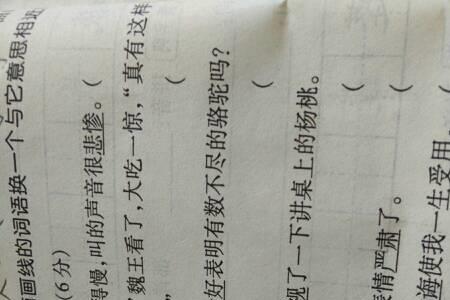 画线的词语换一个与它意思相近
(6分)
得慢,叫的声音很悲惨。(
魏王看了,大吃一惊,“真有这样
”(
好表明有数不尽的骆驼吗?
(
了一下讲桌上的杨桃。
(
表情严肃了。(
海使我一生受用。
(